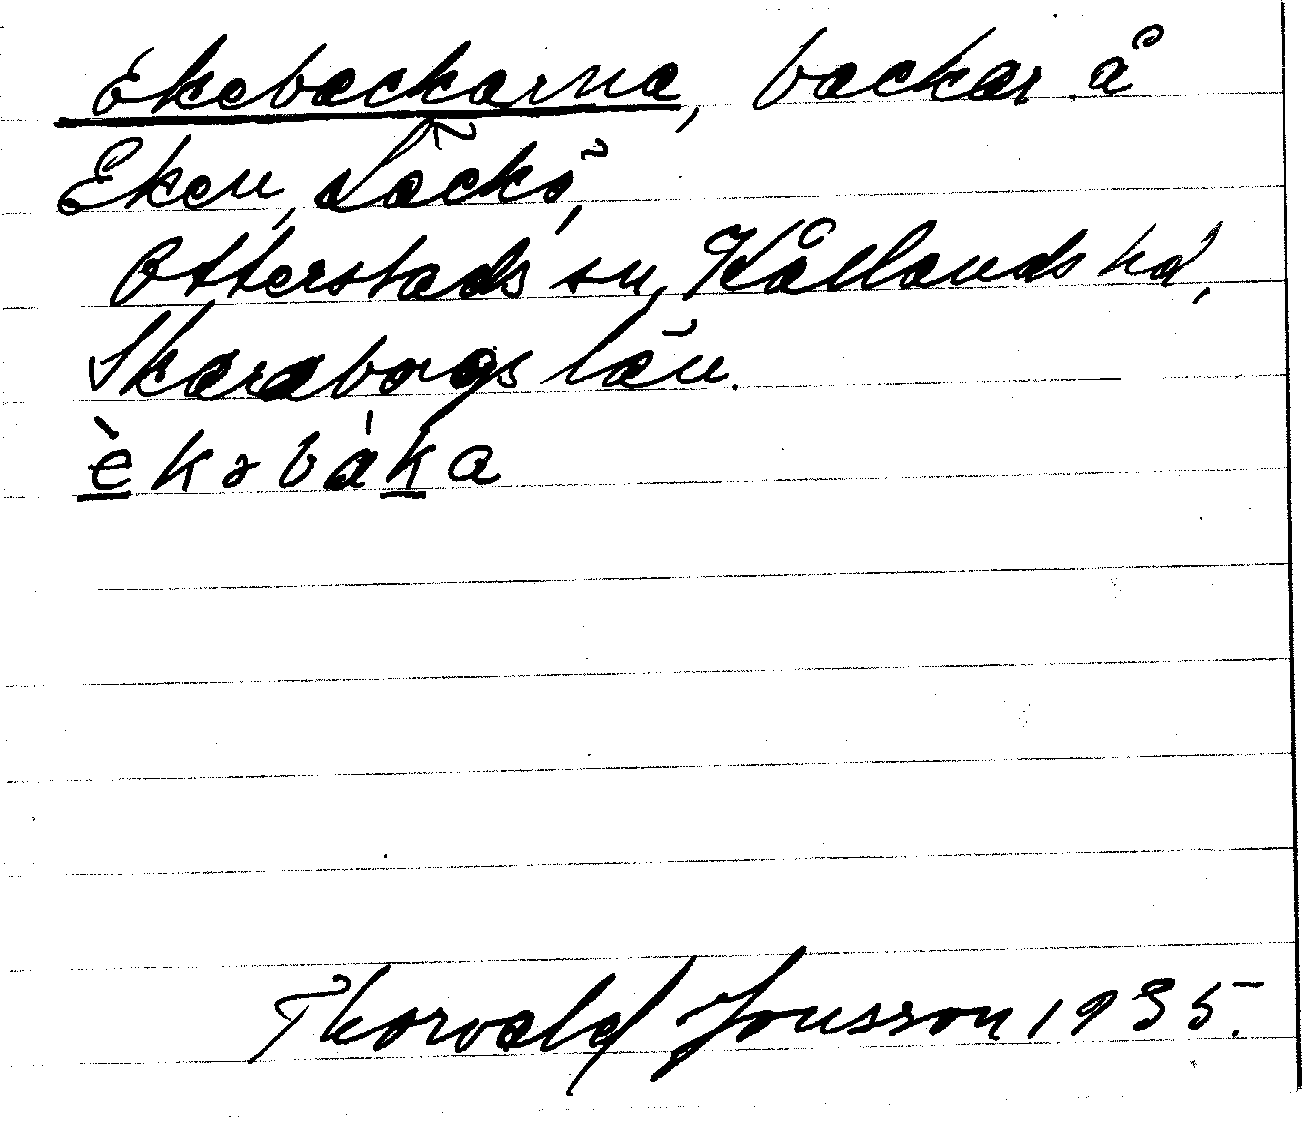 Ekebackarna, backar å
Eken, Läckö,
Otterstads sn, Kållands hd,
Skaraborgs län.
èkəbákа
Thorvald Jonsson 1935.